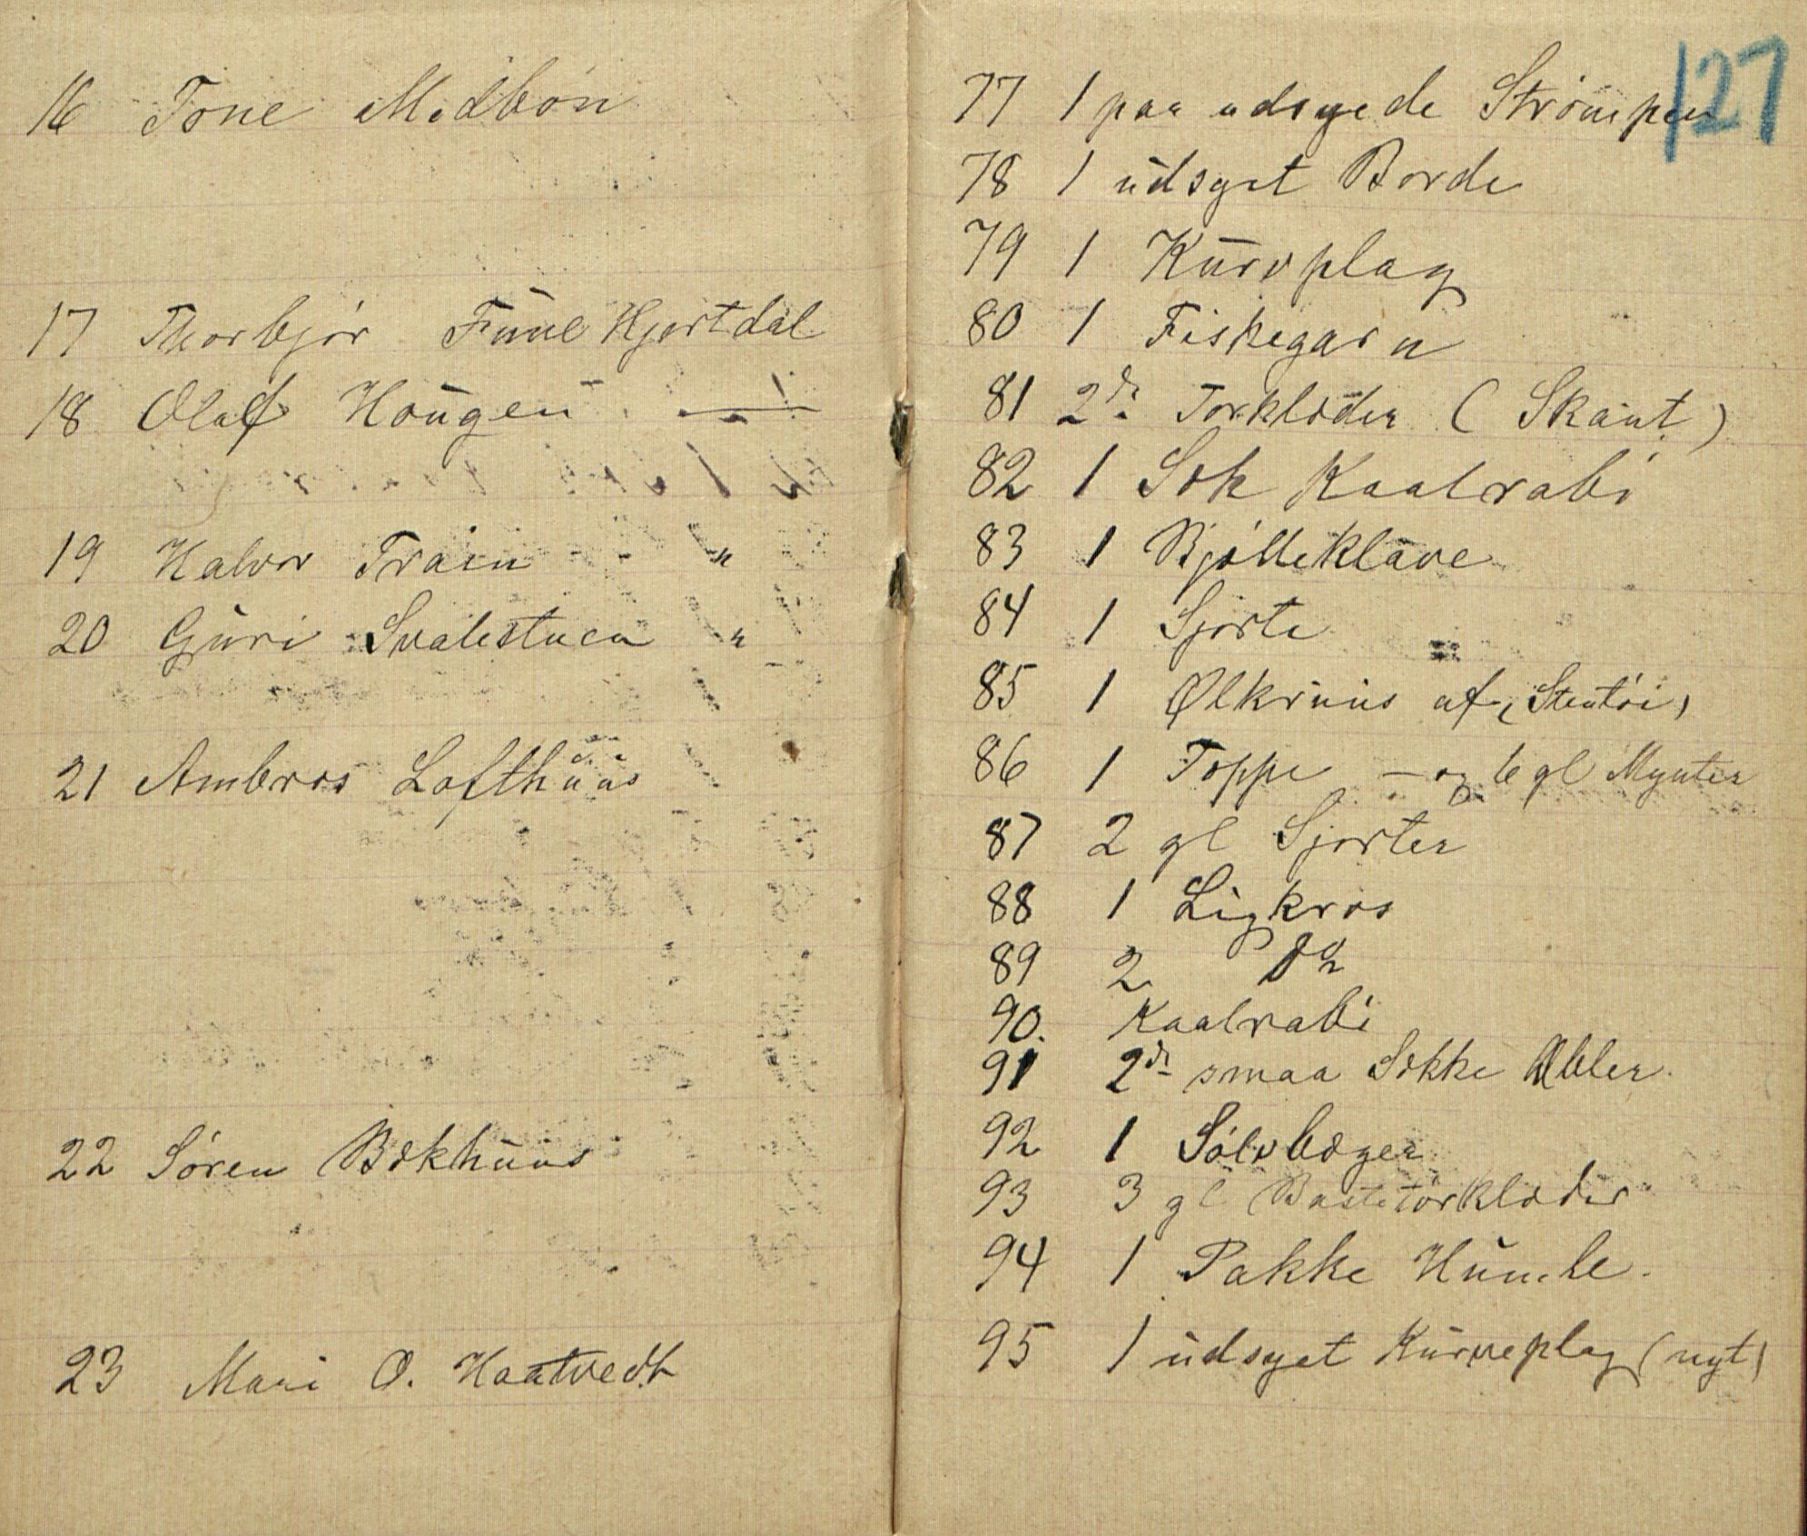 16 Tone Midbön
17 Thorbjör Fune Hjertdal
18 Oluf Hougen —„—
19 Halvor Traen „
20 Guri Svalestuen „
21 Ambros Lofthuus
22 Sören Bækhuus
23 Mari O. Haatvedt
127
77 1 par udsyede Strömper
78 1 udsyet Borde
79 1 Kurvplag
80 1 Fiskegarn
81 2de Törklæder (Skaut)
82 1 Sæk Kaalrabi
83 1 Bjölleklave
84 1 Sjorte
85 1 Ølkruus af (Stentöi)
86 1 Toppe — og 6 gl Mynter
87 2 gl Sjorter
88 1 Ligkros
89 2 do
90. Kaalrabi
91 2de smaa Sække Æbler.
92 1 Sölvbæger
93 3 gl Bastetörklæder
94 1 Pakke Humle.
95 1 udsyet Kurveplag (nyt)